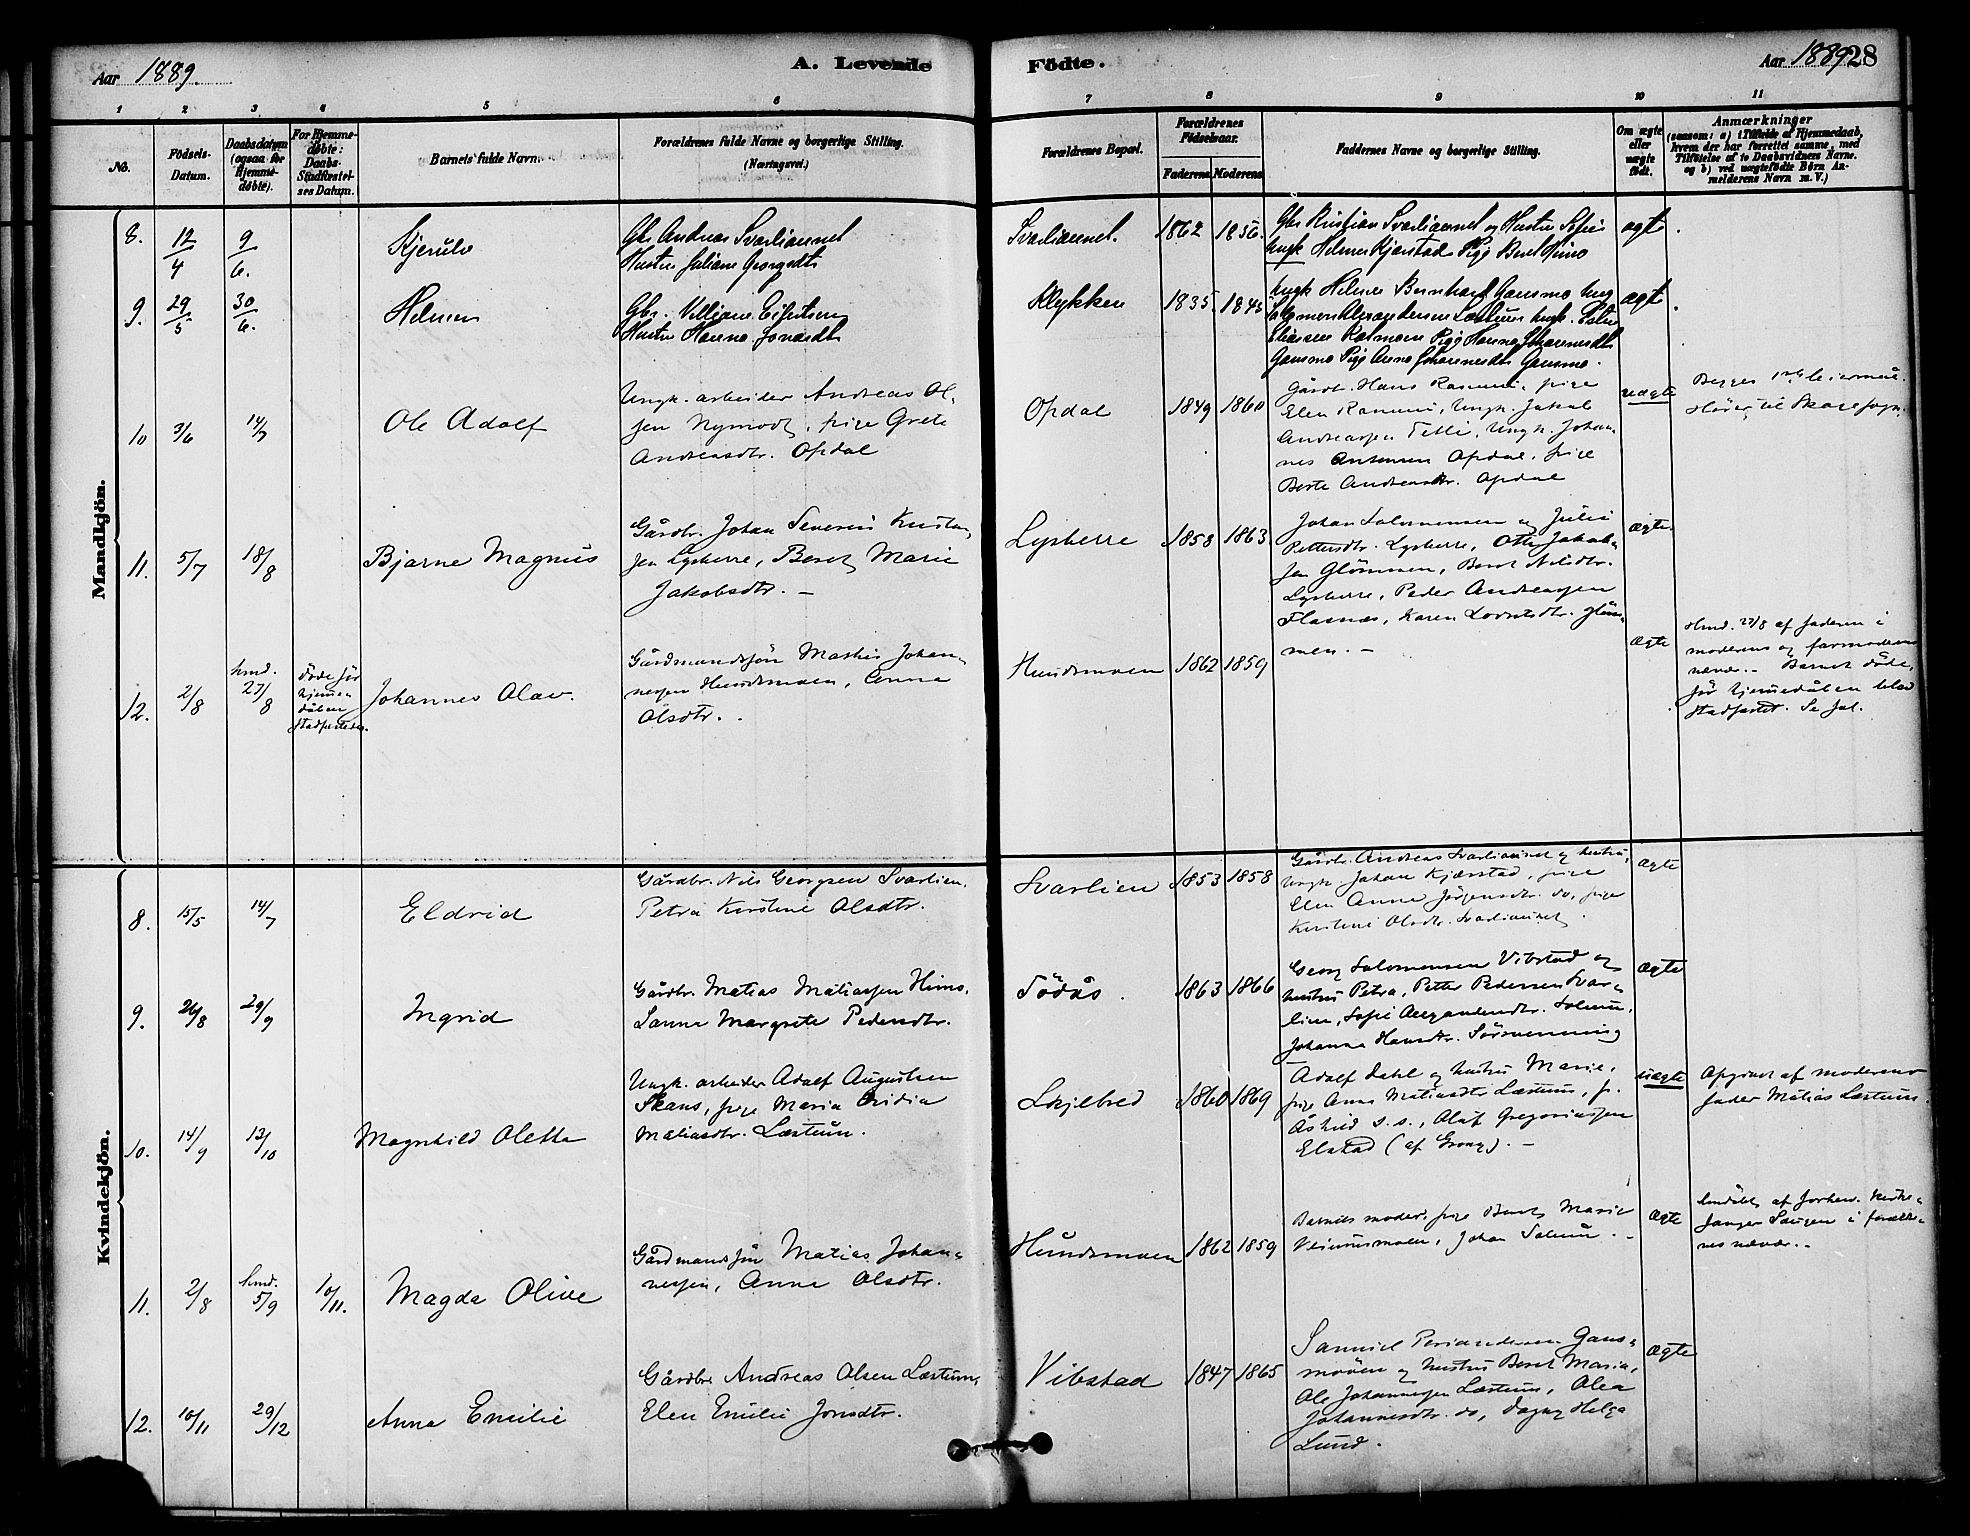 Aar 1889.
A. Levende Födte.
Aar 1889 28
1 2 3 4 5 6 7 8 9 10 11
No.
Födsels-Datum.
Daabsdatum (ogsaa for Hjemme-döbte).
For Hjemme-döbte: Daabs-Stadfæstel-ses Datum.
Barnets fulde Navn.
Forældrenes fulde Navne og borgerlige Stilling.
(Næringsvei.)
Forældrenes Bopæl.
Forældrenes Födselsaar.
Faderens Moderens
Faddernes Navne og borgerlige Stilling.
Om ægte eller uægte födt.
Anmærkninger
(saasom: a) i Tilfælde af Hjemmedaab,
hvem der har forrettet samme, med
Tilföielse af to Daabsvidners Navne.
og b) ved uægtefödte Börn An-
melderens Navn m. V.)
Mandkjön.
8. 12/4 9/6. Kjerulv
Gbr Andreas Svarliaunet
Hustru Juliane Georgsdtr
Svarliaunet. 1862 1856.
Gbr Kristian Svarliaunet og Hustru Sofie
Ungk Helmer Kjærstad Pige Beret Himo
ægte.
9. 29/5 30/6. Helmer
Gbr. Villiam Eilertsen
Hustru Hanna Jonasdtr
Klykken 1835. 1845
Ungk Helmer Bernhard Gansmo Ung
Salomon Alexandersen Læstum Ungk.
Eliassen Pige Hanna Johannesdtr
Gansmo Pige Anna Johannesdtr Gansmo.
ægte.
10 3/6 14/7 Ole Adolf
Ungk. arbeider Andreas Ol-
sen Nymoen, pige Grete
Andreasdtr. Opdal
Opdal 1849 1860
Gårdbr. Hans Ranumi, pige
Elen Ranumi, Ungk. Jakob
Andreassen Tetli, Ungk. Johan-
nes Antonsen Opdal, pige
Berte Andreasdtr. Opdal
uægte
Begges 1ste leiermål.
Hører til Skage sogn.
11. 5/7 18/8 Bjarne Magnus
Gårdbr. Johan Severin Kristian-
sen Lysberre, Beret Marie
Jakobsdtr. -
Lysberre 1858 1863
Johan Salomonsen og Julie
Pettersdtr. Lysberre, Otto Jakob-
sen Glømmen, Beret Nilsdtr.
Lysberre, Peder Andreassen
Flasnæs, Karen Lorntsdtr. Gløm-
men. -
ægte.
12. 2/8 hmd. 27/8
Døde før
hjemme-
dåben
stadfæstedes.
Johannes Olav.
Gårdmandssøn Mathis Johan-
nessen Hundsmoen, Anna
Olsdtr. -
Hundsmoen 1862 1859
ægte
Hmd. 27/8 af faderen i
moderens og farmoderens
nærv. - Barnet døde,
før hjemmedåben blev
stadfæstet.
Kvindekjön.
8. 15/5 14/7 Eldrid
Gårdbr. Nils Georgsen Svarlien.
Petra Kirstine Olsdtr.
Svarlien 1853 1858
Gårdbr. Andreas Svarliaunet og hustru,
Ungk. Johan Kjærstad, pige
Elen Anna Jørgensdtr. do, pige
Kirstine Olsdtr. Svarliaunet.
ægte
9. 26/8 29/9 Ingrid
Gårdbr. Matias Matiassen Himo,
Lanna Margrete Pedersdtr.
Fødås. 1863 1866
Georg Salomonsen Vibstad og
hustru Petra, Petter Pedersen Svar-
lien, Sofie Solum,
Johanna Hansdtr. Sørvemming
ægte
10. 14/9 13/10 Magnhild Oletta
Ungk. arbeider Adolf Augustsen
Skans, pige Maria Ovidia
Matiasdtr. Læstum.
Lysjebred 1860 1869
Adolf Dahl og hustru Marie,
pige Anna Matiasdtr Læstum, p.
Åshild s. s., Olaf Gregoriussen
Elstad (af Grong). -
uægte
Opgivet af moderens
fader Matias Læstum.
11. 2/8 hmd. 5/9 10/11. Magda Olive
Gårdmandssøn Matias Johan-
nessen, Anna Olsdtr.
Hundsmoen 1862 1859
Barnets moder, pige Beret Marie
Johan Solum. -
ægte
Hmdøbt af forhenv. kirke-
sanger i foræld-
renes nærvær. -
12. 10/11 29/12 Anna Emilie
Gårdbr. Andreas Olsen Læstum,
Elen Emilie Jonsdtr.
Vibstad 1847 1865
Samuel Gans-
moen og hustru Beret Maria,
Ole Johannessen Læstum, Olea
Johannesdtr. do, Dagny Helga
Lund.
ægte